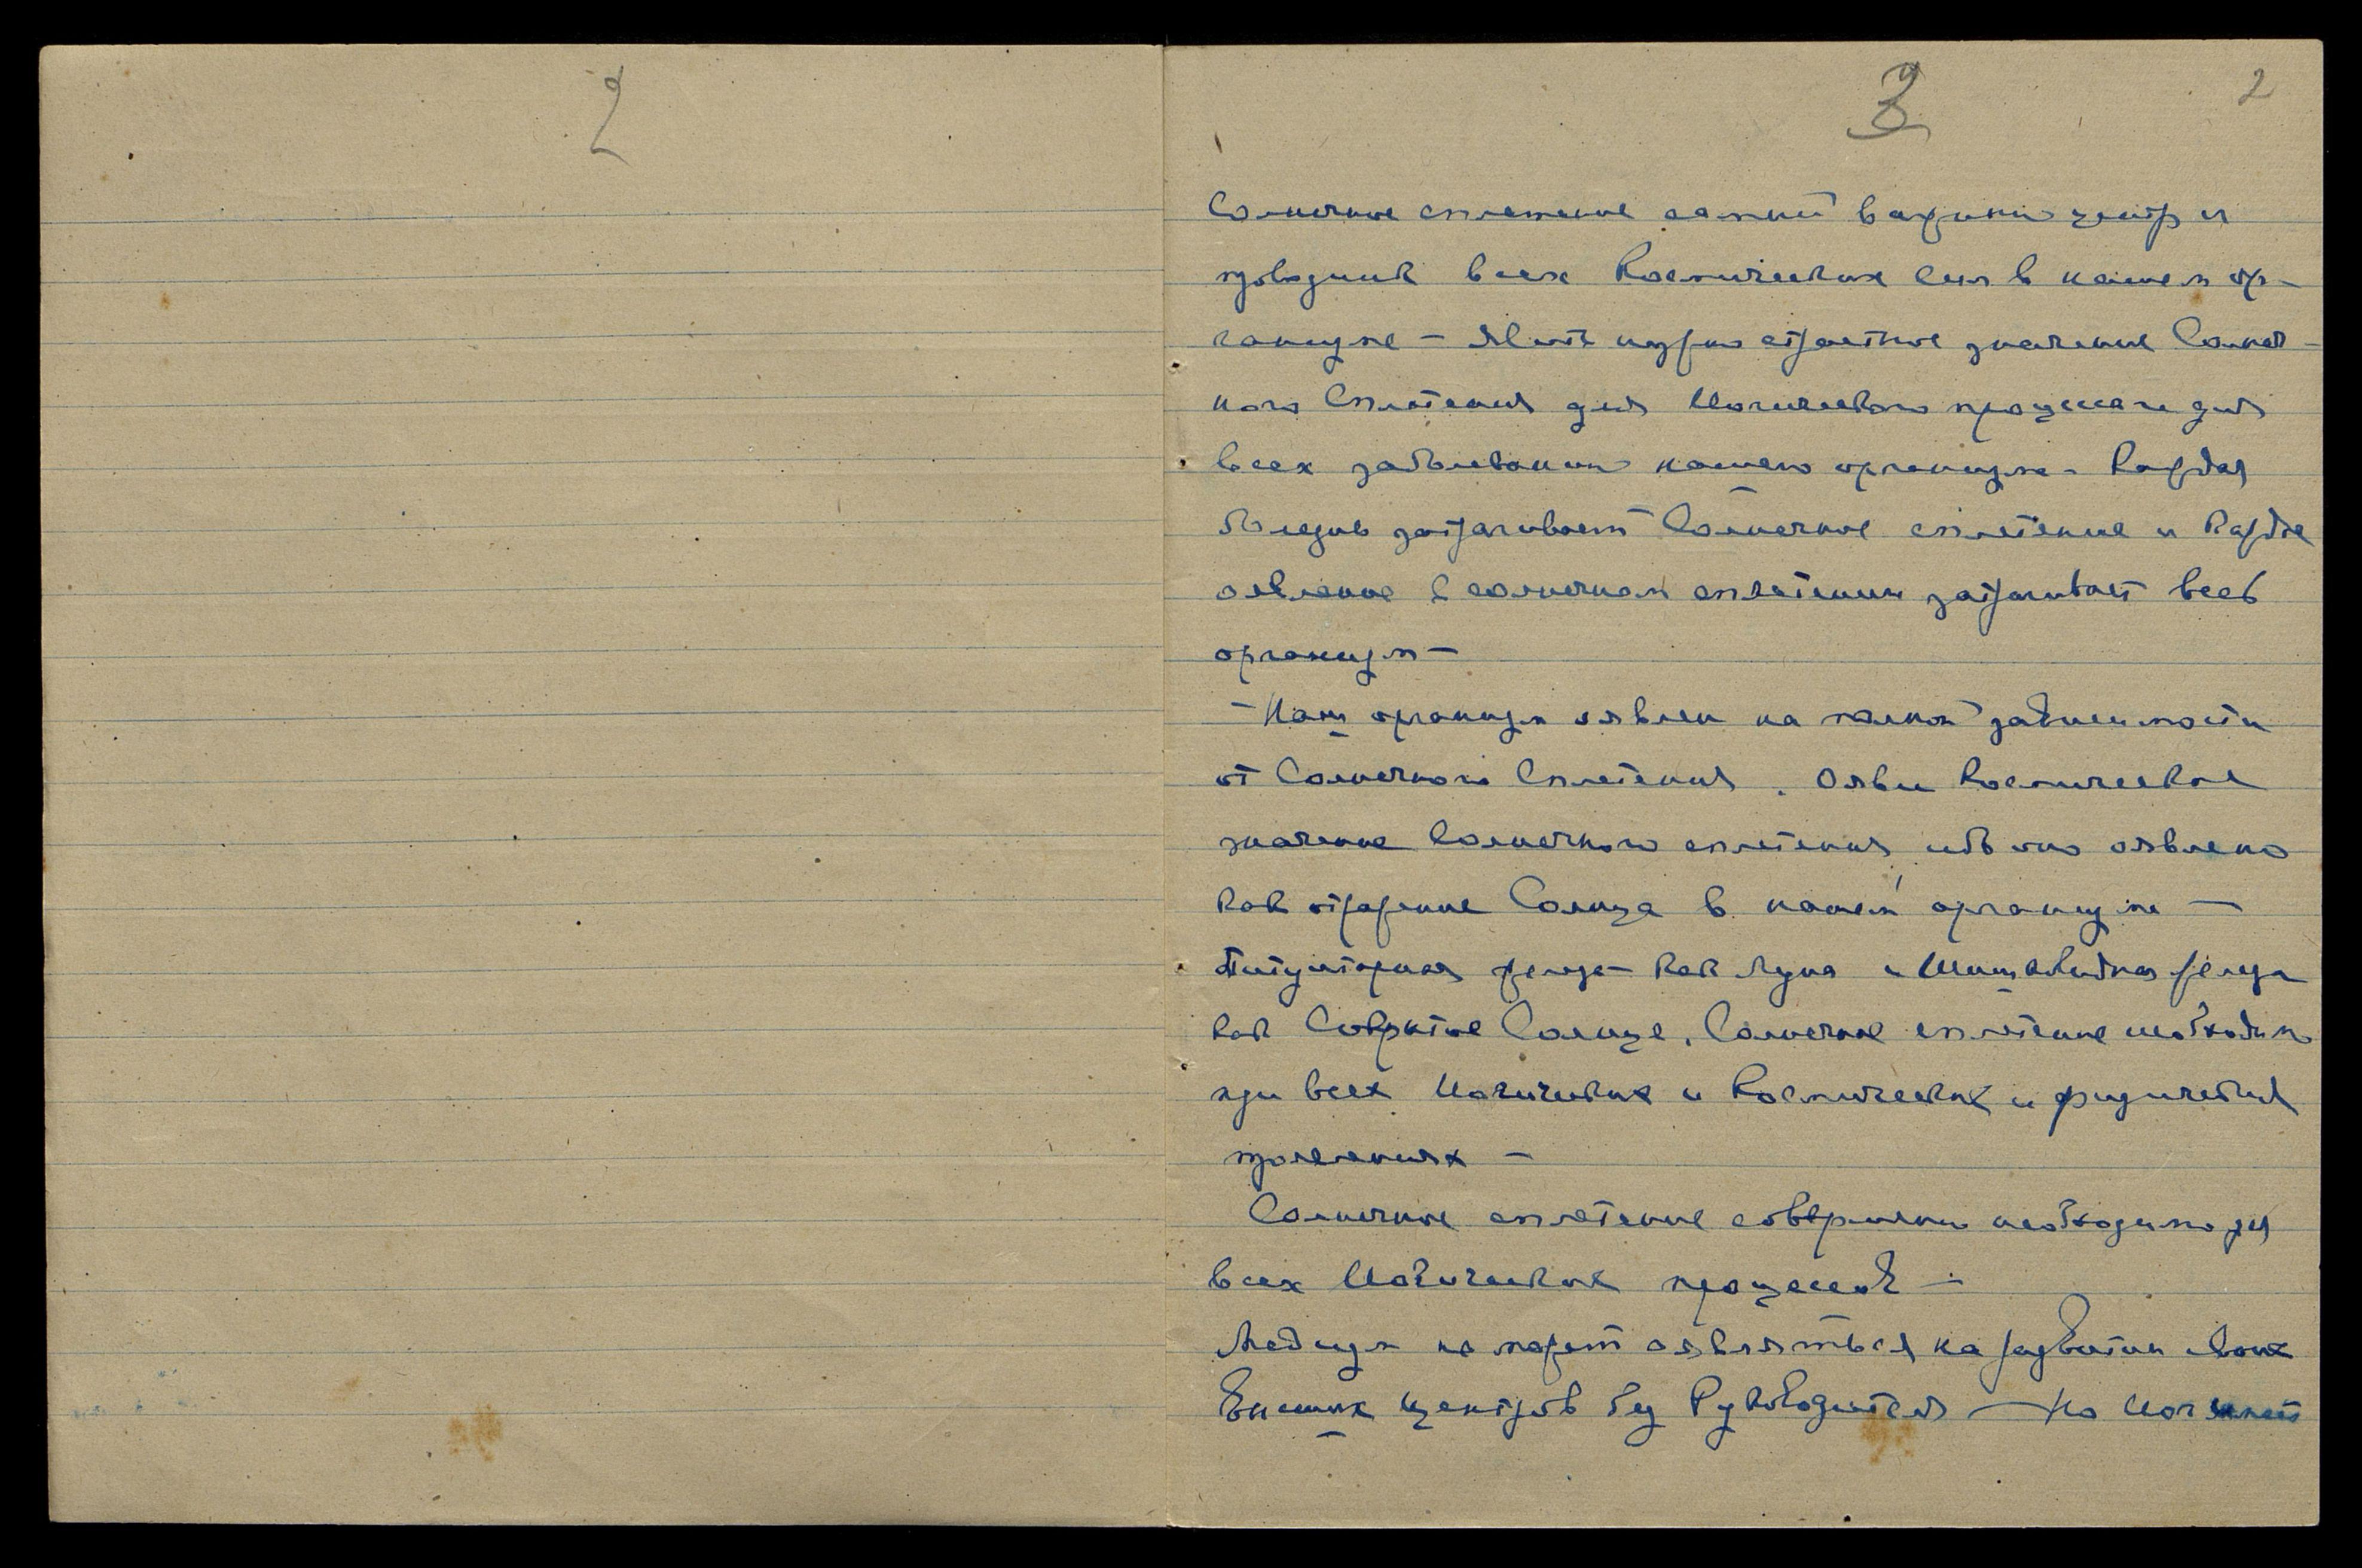 2
3
2
Солнечное сплетение самый важный центр и
проводник всех Космических Сил в нашем ор-
ганизме – Явить нужно страстное значение Солнеч-
ного Сплетения для Йогического процесса и для
всех заболеваний нашего организма – Каждая
болезнь затрагивает Солнечное сплетение и каждое
явление в солнечном сплетении затрагивает весь
организм –
– Наш организм оявлен на полной зависимости
от Солнечного Сплетения. Ояви Космическое
значение Солнечного сплетения, ибо оно оявлено
как отражение Солнца в нашем организме –
Питуитарная железа – как Луна и Шишковидная железа
как Сокрытое Солнце. Солнечное сплетение необходимо
при всех Йогических и Космических и физических
проявлениях –
Солнечное сплетение совершенно необходимо для
всех Йогических процессов –
Медиум не может оявляться на развитии своих
Высших центров без Руководителя – Но Йог может